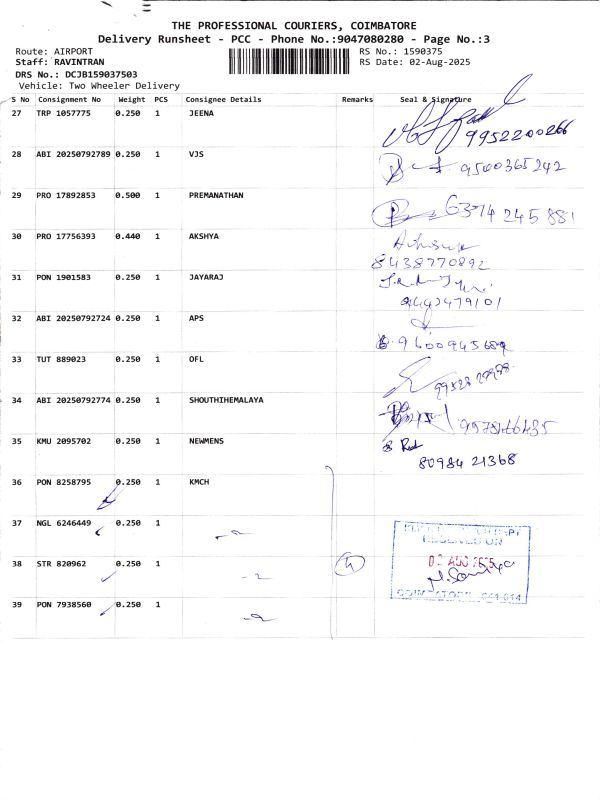 THE PROFESSIONAL COURIERS, COIMBATORE
Delivery Runsheet - PCC - Phone No.:9047080280 - Page No.:3
Route: AIRPORT RS No.: 1590375
Staff: RAVINTRAN RS Date: 02-Aug-2025
DRS No.: DCJB159037503
Vehicle: Two Wheeler Delivery
S No Consignment No Weight PCS Consignee Details Remarks Seal & Signature
27 TRP 1057775 0.250 1 JEENA
9952200266
28 ABI 20250792789 0.250 1 VJS
9500365242
29 PRO 17892853 0.500 1 PREMANATHAN
6374 245 881
30 PRO 17756393 0.440 1 AKSHYA
8438770892
31 PON 1901583 0.250 1 JAYARAJ
9442479101
32 ABI 20250792724 0.250 1 APS
9600945689
33 TUT 889023 0.250 1 OFL
34 ABI 20250792774 0.250 1 SHOUTHIHEMALAYA
35 KMU 2095702 0.250 1 NEWMENS
80984 21368
36 PON 8258795 0.250 1 KMCH
37 NGL 6246449 0.250 1
38 STR 820962 0.250 1
4
39 PON 7938560 0.250 1